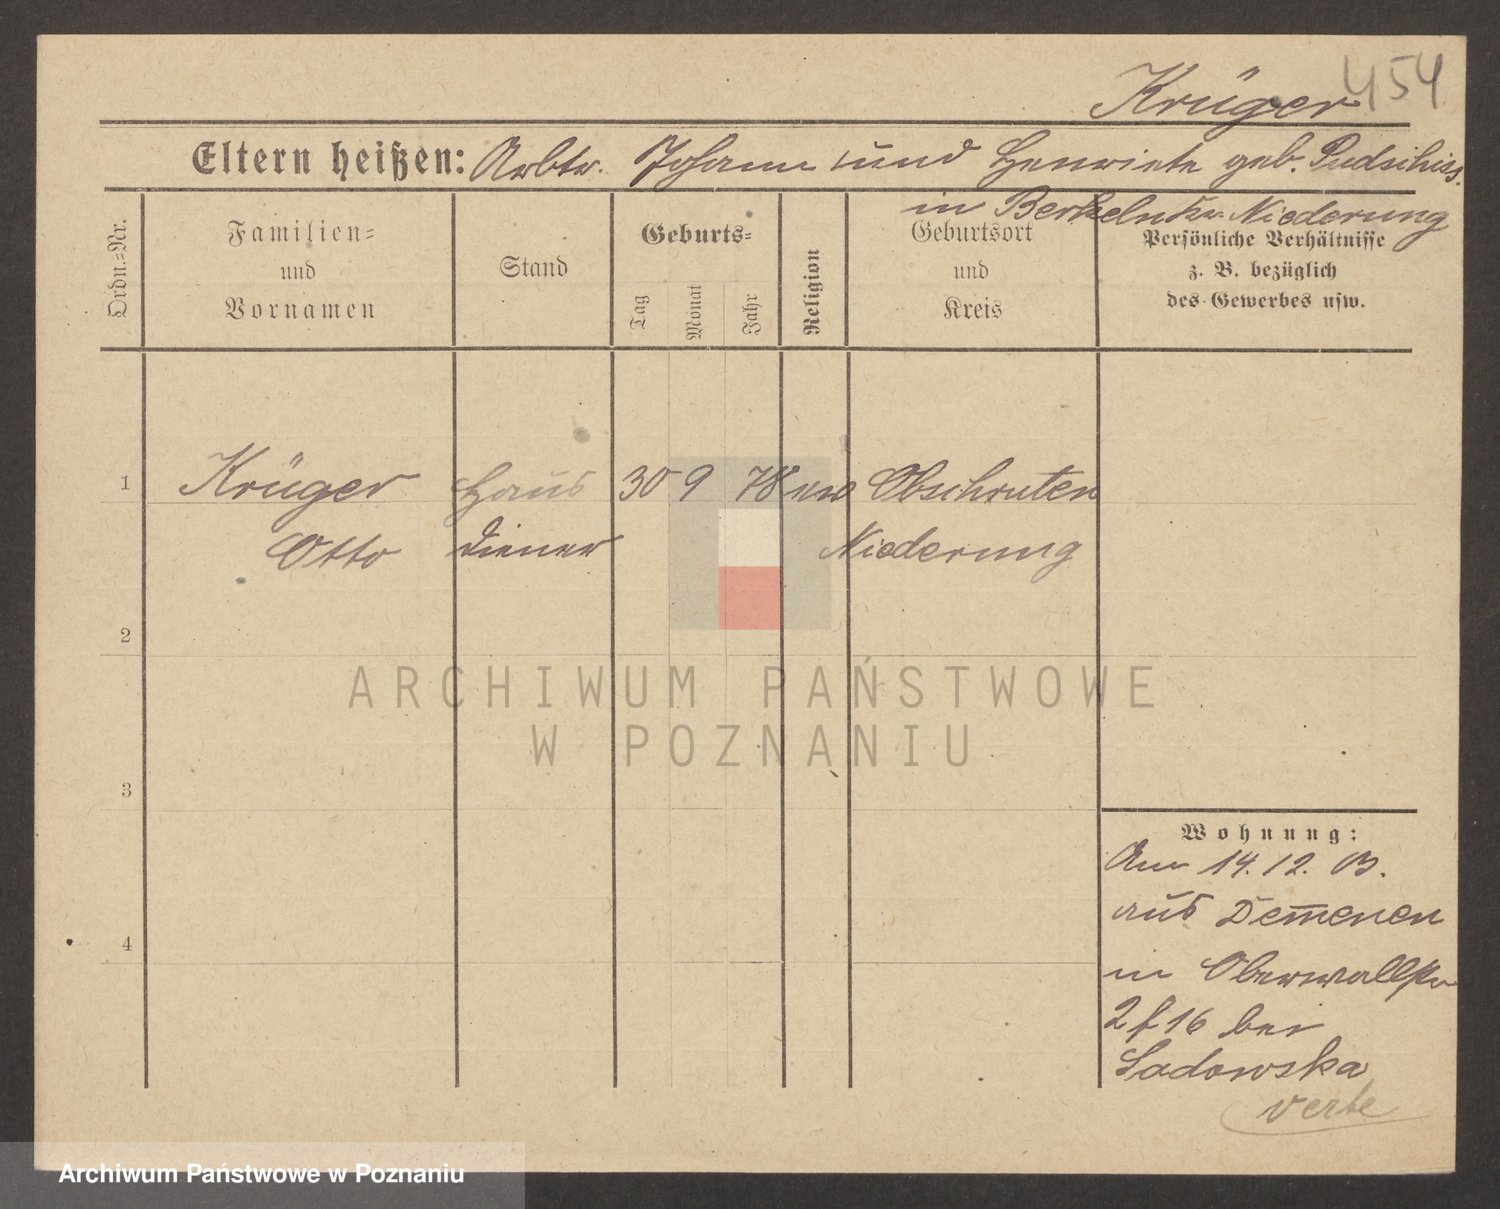 454
Krüger
Eltern heißen: Arbtr. Johann und Henriete geb. Pudschiss.
in Berkeln Kr. Niederung
Ordn.-Nr.
Familien-
und
Vornamen
Stand
Geburts-
Tag
Monat
Jahr
Religion
Geburtsort
und
Kreis
Persönliche Verhältnisse
z. B. bezüglich
des Gewerbes usw.
1 Krüger Haus 30 9 78 ew Obschruten
Otto diener Niederung
2
3
4
Wohnung:
Am 14.12.03.
aus Dem̅enen
in Oberwallstr
2 f 16 bei
Sadowska
ARCHIWUM PAŃSTWOWE
W POZNANIU
Archiwum Państwowe w Poznaniu